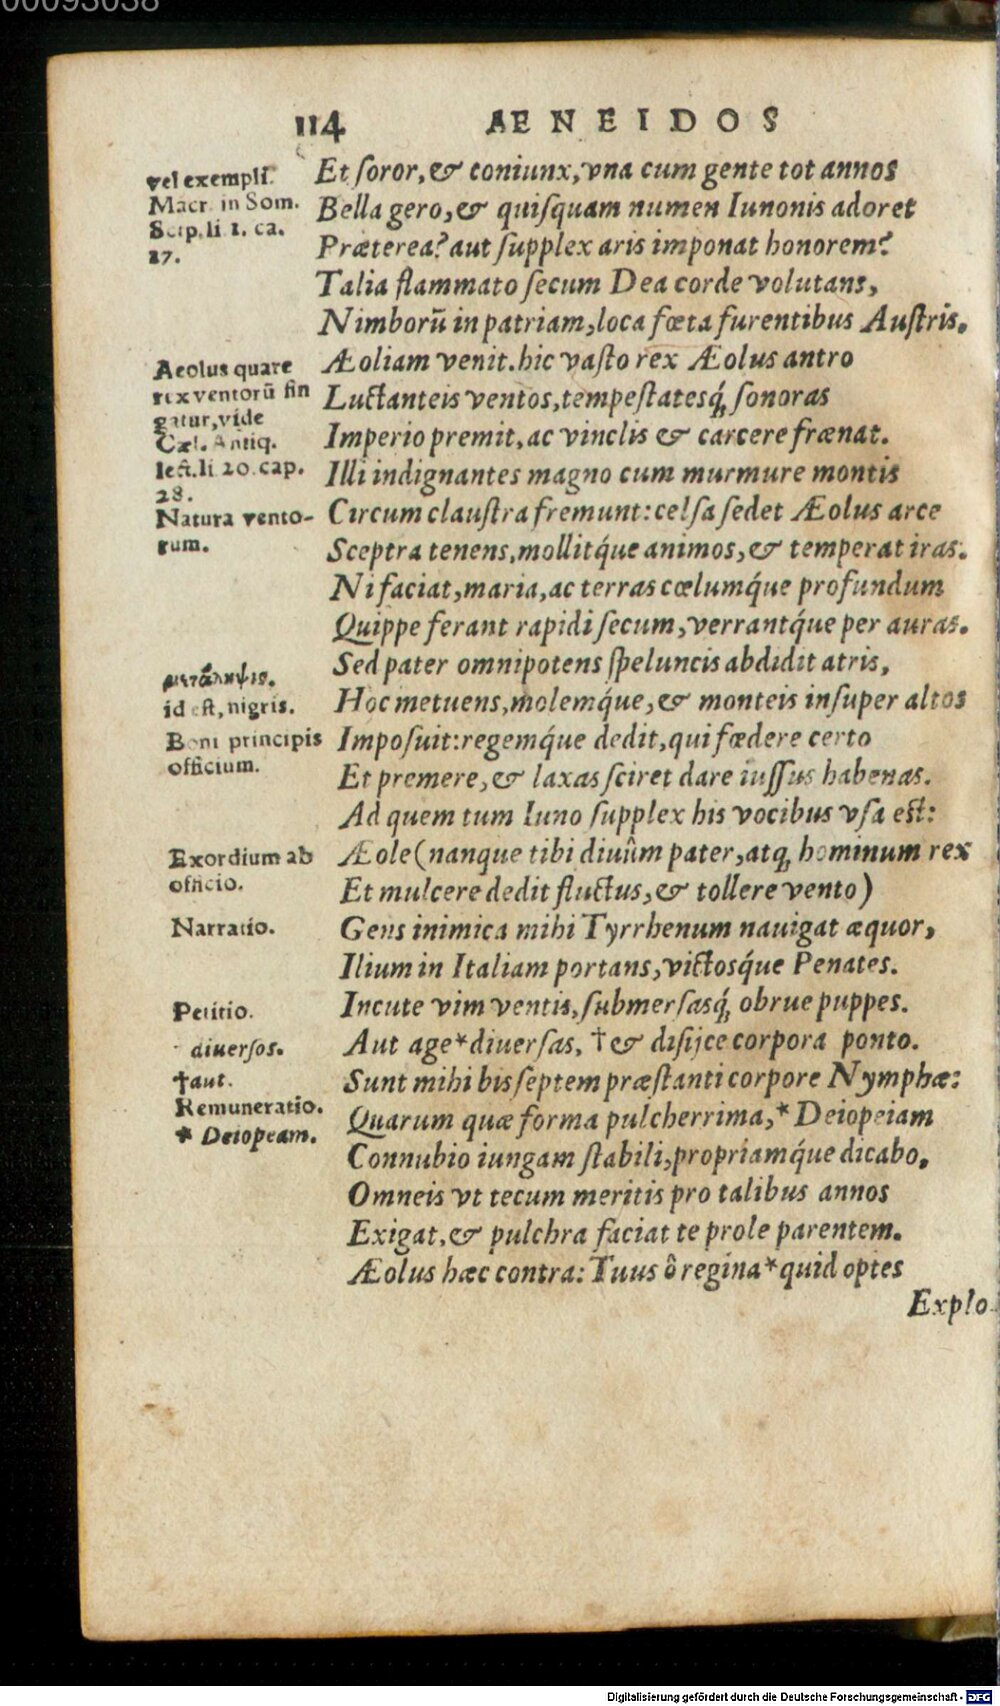 00093038
114 AENEIDOS
vel exempli.
Macr. in Som.
Scip. li. 1. ca.
27.
Et ſoror, & coniunx, vna cum gente tot annos
Bella gero, & quiſquam numen Iunonis adoret
Præterea? aut ſupplex aris imponat honorem?
Talia flammato ſecum Dea corde volutans,
Nimborū in patriam, loca fœta furentibus Auſtris,
Aeolus quare
rex ventorū fin
gatur, vide
Cæl. Antiq.
lect. li 20. cap.
28.
Natura vento-
rum.
Æoliam venit. hic vaſto rex Æolus antro
Luctanteis ventos, tempeſtatesq́; ſonoras
Imperio premit, ac vinclis & carcere frænat.
Illi indignantes magno cum murmure montis
Circum clauſtra fremunt: celſa ſedet Æolus arce
Sceptra tenens, mollitq́ue animos, & temperat iras.
Ni faciat, maria, ac terras cœlumq́ue profundum
Quippe ferant rapidi ſecum, verrantq́ue per auras.
μετάληψις.
id eſt, nigris.
Boni principis
officium.
Sed pater omnipotens ſpeluncis abdidit atris,
Hoc metuens, molemq́ue, & monteis inſuper altos
Impoſuit: regemq́ue dedit, qui fœdere certo
Et premere, & laxas ſciret dare iuſſus habenas.
Ad quem tum Iuno ſupplex his vocibus vſa eſt:
Exordium ab
officio.
Æole (nanque tibi diuûm pater, atq; hominum rex
Et mulcere dedit fluctus, & tollere vento)
Narratio.
Gens inimica mihi Tyrrhenum nauigat æquor,
Ilium in Italiam portans, victosq́ue Penates.
Petitio.
Incute vim ventis, ſubmerſasq́; obrue puppes.
diuerſos.
Aut age *diuerſas, † & diſijce corpora ponto.
†aut.
Sunt mihi bis ſeptem præſtanti corpore Nymphæ:
Remuneratio.
* Deiopeam.
Quarum quæ forma pulcherrima, * Deiopeiam
Connubio iungam ſtabili, propriamq́ue dicabo,
Omneis vt tecum meritis pro talibus annos
Exigat, & pulchra faciat te prole parentem.
Æolus hæc contra: Tuus ô regina *quid optes
Explo-
Digitalisierung gefördert durch die Deutsche Forschungsgemeinschaft - DFG